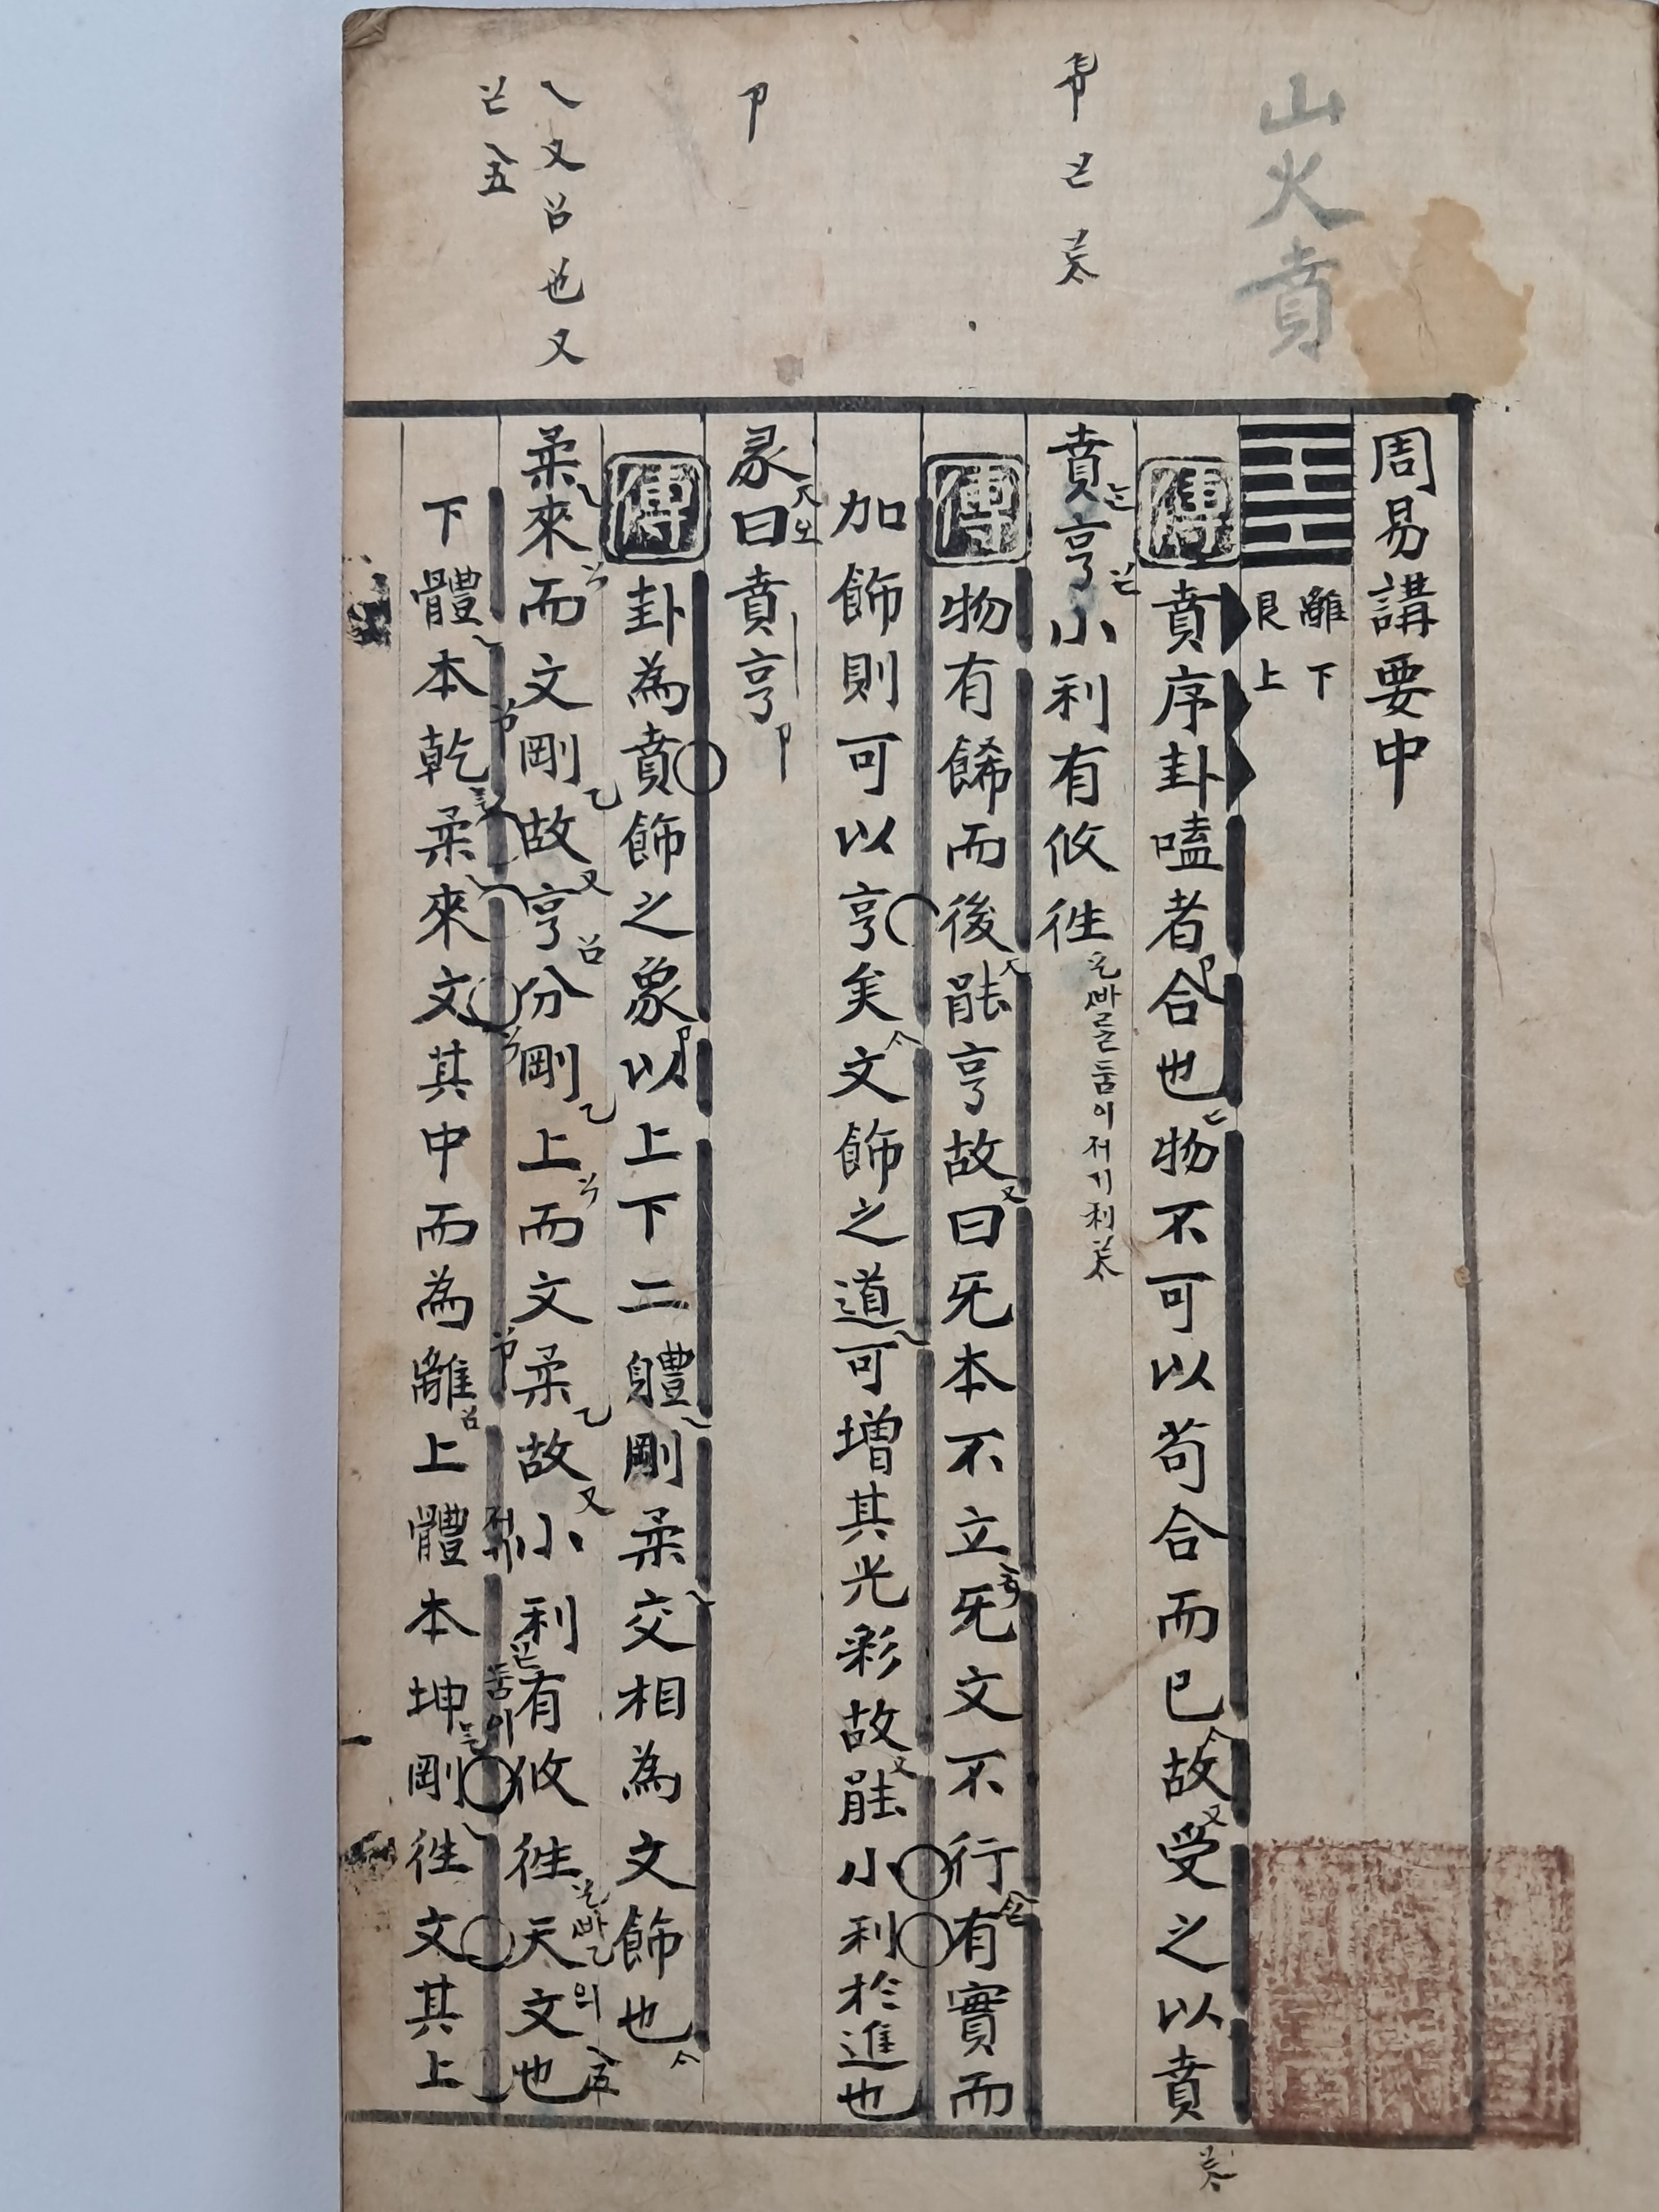 山火賁
周易講要中
離下
艮上
傳 賁序卦嗑者合也物不可以苟合而已故受之以賁
賁亨小利有攸徃
傳 物有餙而後能亨故曰旡本不立旡文不行有實而
加飾則可以亨矣文飾之道可增其光彩故能小利於進也
彖曰賁亨
傳 卦為賁飾之象以上下二軆剛柔交相為文飾也
柔來而文剛故亨分剛上而文柔故小利有攸徃天文也
下體本乾柔來文其中而為離上體本坤剛徃文其上